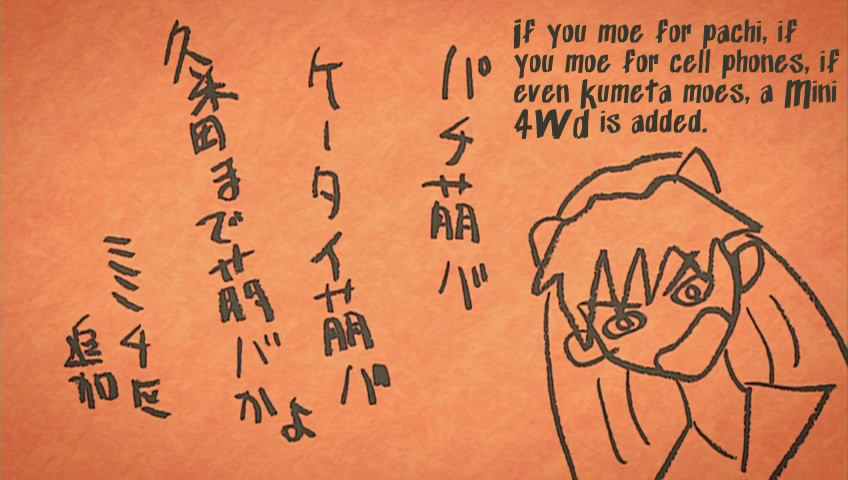 If you moe for pachi, if
you moe for cell phones, if
even Kumeta moes, a Mini
4Wd is added.
パチ萌バ
ケータイ萌バ
久米田まで萌バかよ
ミニ4駆
追加